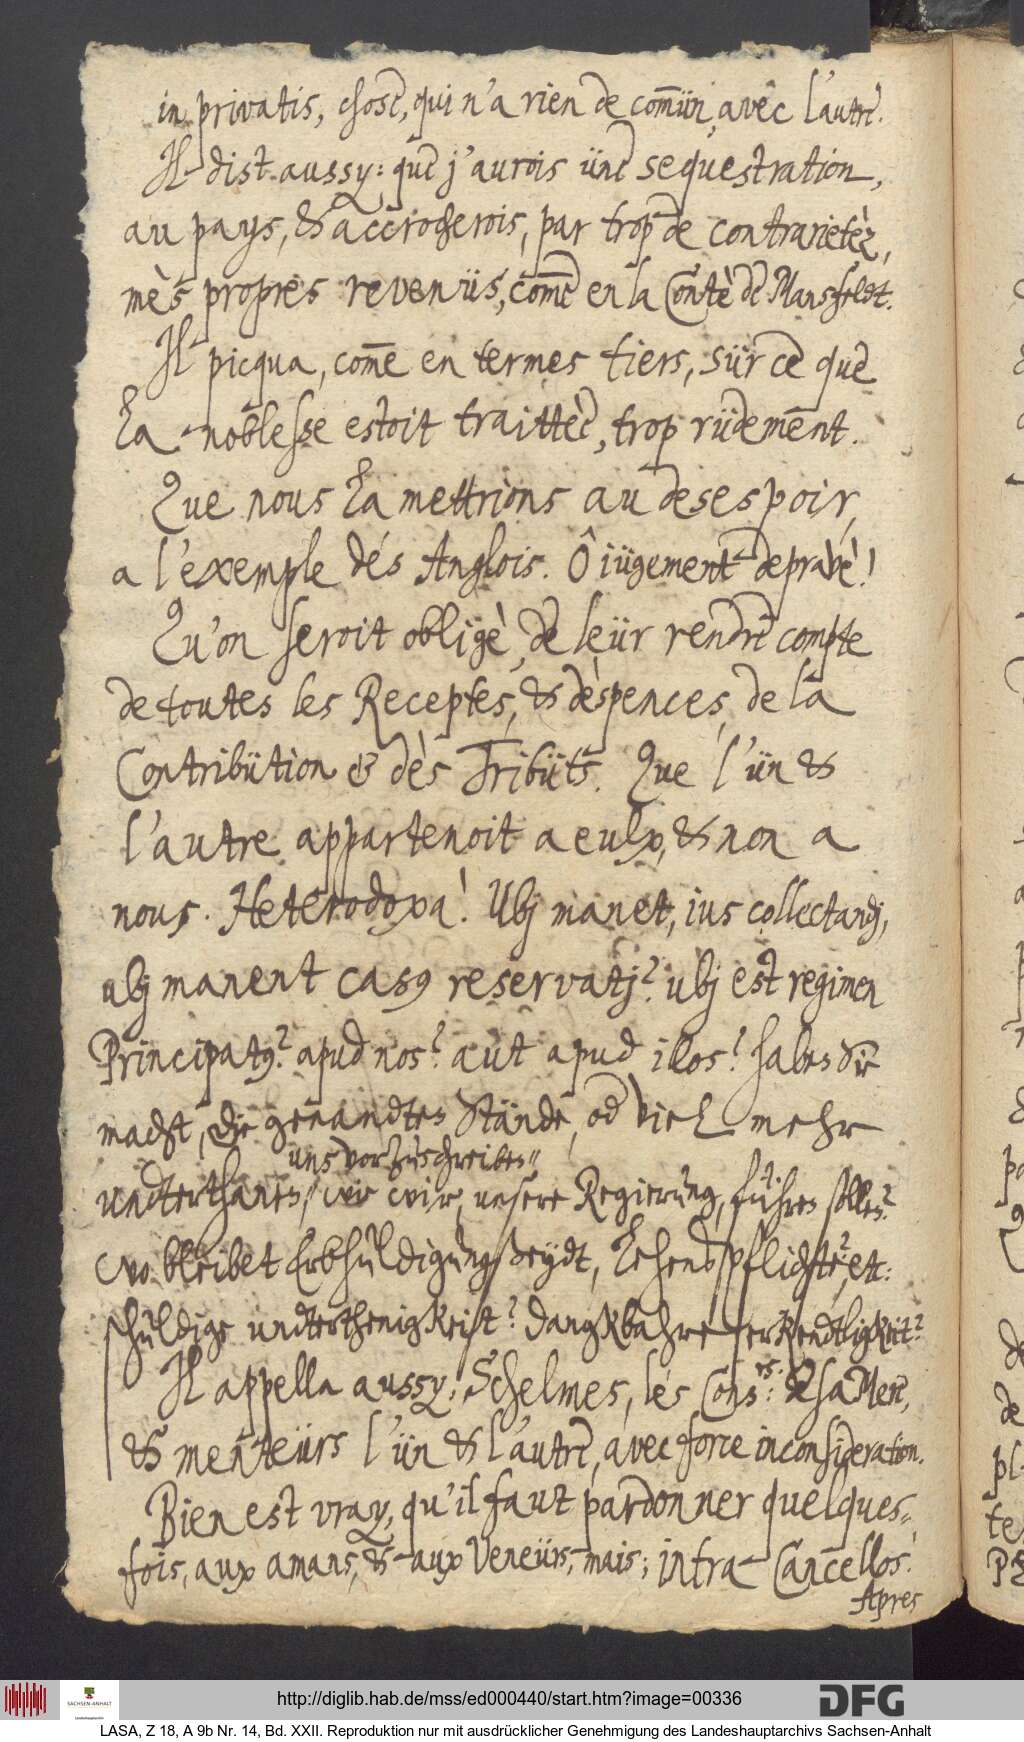 in privatis, chose, qui n'a rien de com̄ün, avec l'autre.
Il dist aussy: que j'aurois üne sequestration,
au pays, & accrocherois, par trop de contrarietèz,
mès propres revenüs, com̄e en la Contè de Mansfeldt.
Il picqua, com̄e en termes tiers, sür ce que
la noblesse estoit traittèe, trop rüdement.
Que nous la mettrions au desespoir,
a l'exemple dés Anglois. Ô iügement depravè!
Qu'on seroit obligè, de leür rendre compte
de toutes les Receptes, & dèspences, de la
Contribütion & dès Tribüts. Que l'ün &
l'autre appartenoit a eulx, & non a
nous. Heterodoxa! Ubj manet, ius collectandj,
ubj manent casq reservatj? ubj est regimen
Principatq? apud nos? aut apud illos? haben Sie
macht, die genandten Stände, od viel mehr
uns vorzuschreiben//
undterthanen, // wie wir, unsere Regierung, führen sollen?
wo bleibet Erbhuldigungs eydt, Lehens pflichte? ett:
schuldige undterthenigkeist? danckbahre erkendtligkeit?
Il appella aussy: Schelmes, lés Cons:rs: de sa Mere,
& menteürs l'ün & l'autre, avec force inconsideration.
Bien est vray, qu'il faut pardonner quelques=
fois, aux amans, & aux Veneürs, mais; intra Cancellos.
Apres
http://diglib.hab.de/mss/ed000440/start.htm?image=00336
DFG
SACHSEN-ANHALT
LASA, Z 18, A 9b Nr. 14, Bd. XXII. Reproduktion nur mit ausdrücklicher Genehmigung des Landeshauptarchivs Sachsen-Anhalt